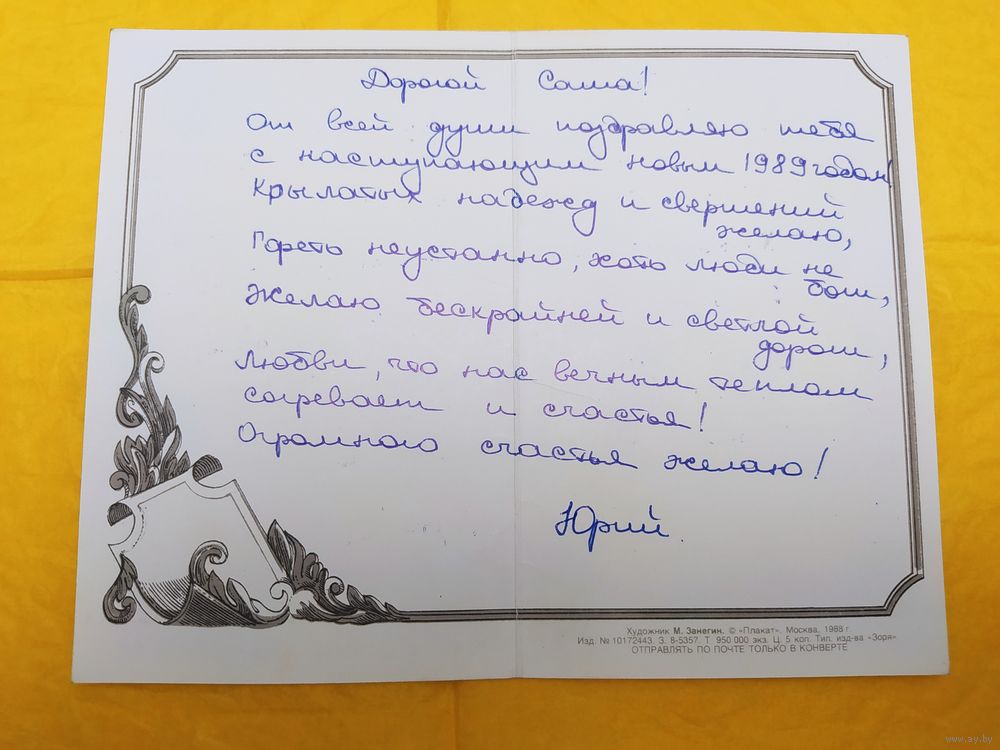 Дорогой Саша!
От всей души поздравляю тебя
с наступающим новым 1989 годом!
Крылатых надежд и свершений
желаю,
Гореть неустанно, хоть люди не
боги,
Желаю бескрайней и светлой
дороги,
Любви, что нас вечным теплом
согревает и счастья!
Огромного счастья желаю!
Юрий.
Художник М. Занегин. © «Плакат». Москва. 1988 г.
Изд. № 10172443. З. 8-5357. Т 950 000 экз. Ц. 5 коп. Тип. изд-ва «Зоря»
ОТПРАВЛЯТЬ ПО ПОЧТЕ ТОЛЬКО В КОНВЕРТЕ
www.ay.by